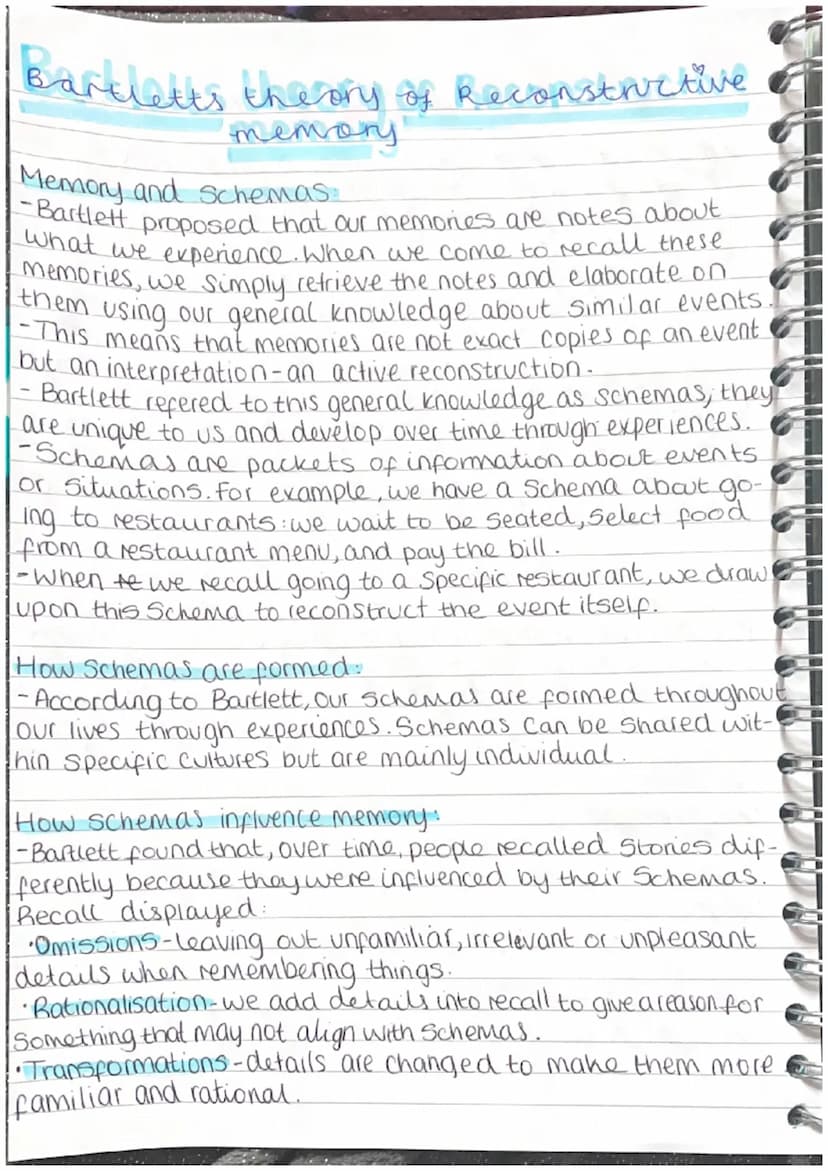 Bartletts theory of Reconstructive
memory
Memory and Schemas:
-Bartlett proposed that our memories are notes about
what we experience. When we come to recall these
memories, we simply retrieve the notes and elaborate on
them using our general knowledge about similar events.
-This means that memories are not exact copies of an event
but an interpretation-an active reconstruction.
- Bartlett refered to this general knowledge as schemas, they
are unique to us and develop over time through experiences.
-Schemas are packets of information about events
or situations. For example, we have a schema about go-
ing to restaurants: we wait to be seated, select food
from a restaurant menu, and pay the bill.
-When we recall going to a specific restaurant, we draw
upon this schema to reconstruct the event itself.
How schemas are formed:
-According to Bartlett, our schemas are formed throughout
our lives through experiences. Schemas can be shared wit-
hin specific cultures but are mainly individual.
How schemas influence memory:
-Bartlett found that, over time, people recalled stories dif-
ferently because they were influenced by their schemas.
Recall displayed:
·Omissions-leaving out unfamiliar, irrelevant or unpleasant
details when remembering things.
·Rationalisation-we add details into recall to give a reason for
something that may not align with schemas.
·Transformations-details are changed to make them more
familiar and rational.